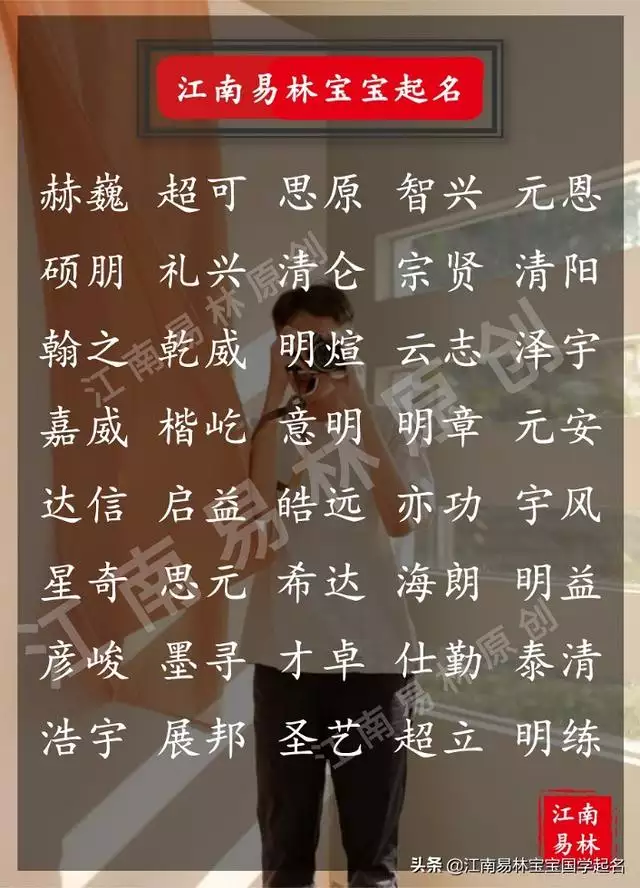 江南易林宝宝起名
赫巍 超可 思原 智兴 元恩
硕朋 礼兴 清仑 宗贤 清阳
翰之 乾威 明煊 云志 泽宇
嘉威 楷屹 意明 明章 元安
达信 启益 皓远 亦功 宇风
星奇 思元 希达 海朗 明益
彦峻 墨寻 才卓 仕勤 泰清
浩宇 展邦 圣艺 超立 明练
江南易林原创
江南易林原创
江南易林原创
江南
易林
头条 @江南易林宝宝国学起名